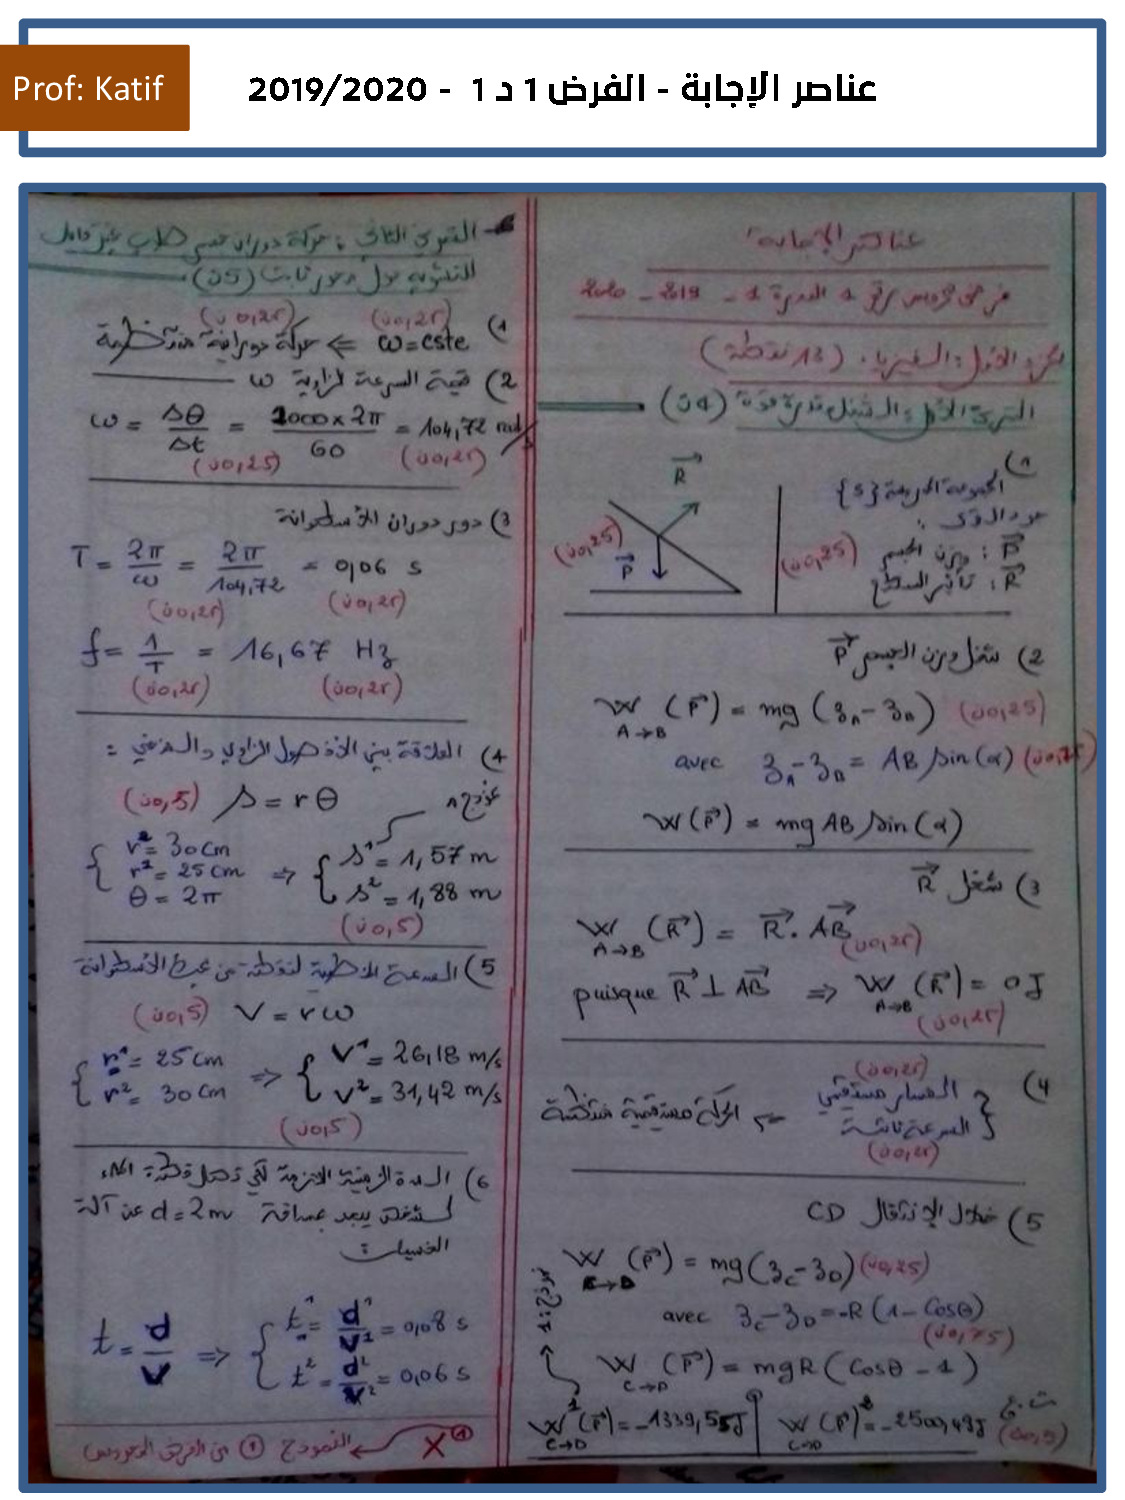 Prof: Katif
عناصر الإجابة - الفرض 1 د 1 - 2019/2020
عناصر الإجابة
فرض محروس رقم 1 الدورة 1 - 2019 - 2020
الجزء الأول: الفيزياء (13 نقطة)
التمرين الأول: الشغل وقدرة قوة (4ن)
1)
المجموعة المدروسة {S}
جرد القوى :
P : وزن الجسم
R : تأثير السطح
(0,25ن)
R
(0,25ن)
P
2) شغل وزن الجسم P
W A→B (P) = mg (zA - zB) (0,25ن)
avec zA - zB = AB sin(α) (0,75ن)
W(P) = mg AB sin(α)
3) شغل R
W A→B (R) = R . AB (0,25ن)
puisque R ⊥ AB ⇒ W A→B (R) = 0 J
(0,25ن)
4)
(0,25ن)
المسار مستقيمي
السرعة ثابتة
(0,25ن)
⇐ الحركة مستقيمية منتظمة
5) خلال الانتقال CD
W C→D (P) = mg (zC - zD) (0,25ن)
avec zC - zD = -R (1 - cosθ)
(0,75ن)
W C→D (P) = mgR (cosθ - 1)
نموذج: 1
ت.ع
W¹ C→D (P) = -1339,55J
W C→D (P)² = -2500,49J (0,5ن)
التمرين الثاني : حركة دوران جسم صلب غير قابل
للتشويه حول محور ثابت (5ن)
(0,25ن) (0,25ن)
1) ω = cste ⇒ حركة دورانية منتظمة
2) قيمة السرعة الزاوية ω
ω = Δθ/Δt = 1000 x 2π / 60 = 104,72 rad/s
(0,25ن) (0,25ن)
3) دور دوران الأسطوانة
T = 2π/ω = 2π/104,72 = 0,06 s
(0,25ن) (0,25ن)
f = 1/T = 16,67 Hz
(0,25ن) (0,25ن)
4) العلاقة بين الأفصول الزاوي والمنحني :
(0,5ن) s = rθ
نموذج 1
r² = 30 cm
r² = 25 cm
θ = 2π
⇒ s¹ = 1,57 m
s² = 1,88 m
(0,5ن)
5) السرعة الخطية لنقطة من محيط الأسطوانة
(0,5ن) V = rω
r¹ = 25 cm
r² = 30 cm
⇒ V¹ = 26,18 m/s
V² = 31,42 m/s
(0,5ن)
6) المدة الزمنية اللازمة لكي تصل قطرة الماء
لشخص يبعد بمسافة d = 2m عن آلة
الغسيل :
t = d/V ⇒ t¹ = d¹/V¹ = 0,08 s
t² = d¹/V² = 0,06 s
X① النموذج ① من الفرض المحروس